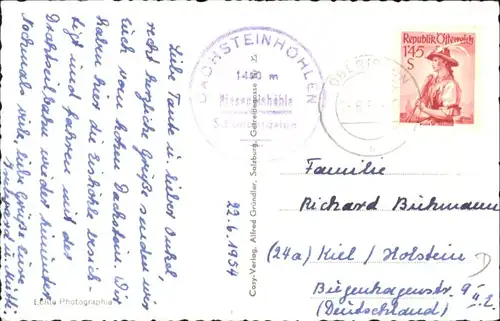 Liebe Tante u. lieber Onkel,
recht herzliche Grüße senden wir
euch vom hohen Dachstein. Wir
haben hier die Eishöhle besich-
tigt und fahren mit der
Drahtseilbahn wieder hinunter
Nochmals viele, liebe Grüße Eure
und u.
Echte Photographie
DACHSTEINHÖHLEN
1450 m
Riesen Eishöhle
Cosy-Verlag, Alfred Gründler, Salzburg, Getreidegasse
22.6.1954
OBERTRAUN
Republik Österreich
1'45
S
Familie
Richard Bühmann
(24a) Kiel / Holstein
Bugenhagenstr. 9 II
(Deutschland)